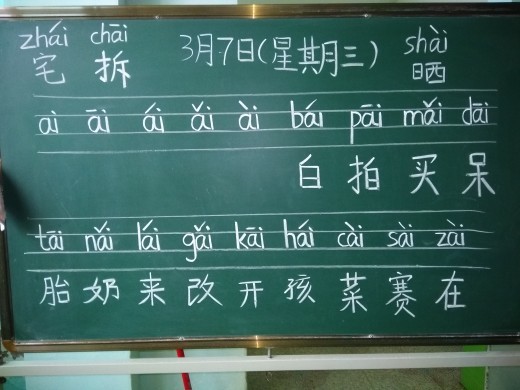 zhái chāi shài
宅 拆 3月7日(星期三) 晒
ai āi ái ǎi ài bái pāi mǎi dāi
白 拍 买 呆
tāi nǎi lái gǎi kāi hái cài sài zài
胎 奶 来 改 开 孩 菜 赛 在